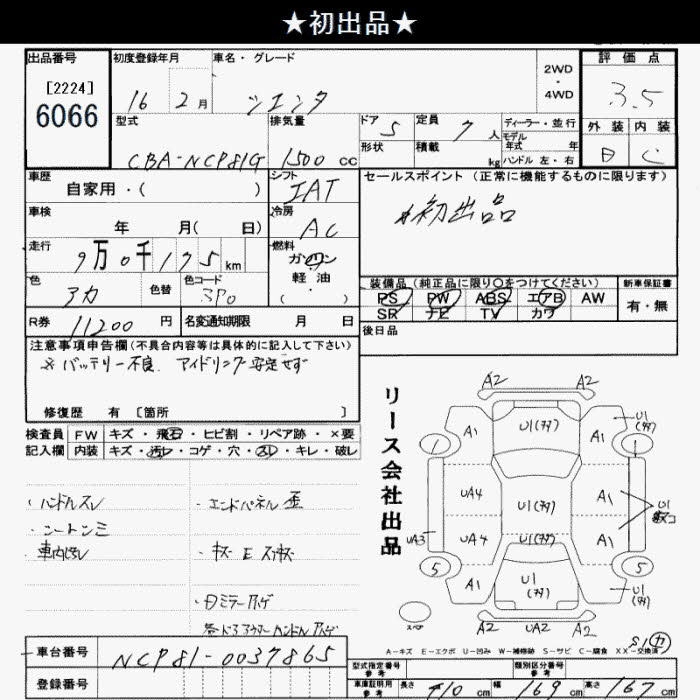 ★初出品★
出品番号
[2224]
6066
初度登録年月
16 2月
車名・グレード
シエンタ
2WD
・
4WD
評価点
3.5
型式
CBA-NCP81G
排気量
1500 cc
ドア 5
定員 7 人
形状
積載 kg
ディーラー・並行
モデル年式 年
ハンドル 左・右
外装 内装
B C
車歴
自家用・( )
シフト
IAT
セールスポイント (正常に機能するものに限ります)
初出品
車検
年 月( 日)
冷房
AC
走行
9万0千175 km
燃料
ガソリン
軽・油
( )
色
アカ
色替
色コード
3P0
装備品 (純正品に限り○をつけてください)
PS PW ABS エアB AW
SR ナビ TV カワ
新車保証書
有・無
R券 11200 円
名変通知期限 月 日
後日品
注意事項申告欄 (不具合内容等は具体的に記入して下さい)
※バッテリー不良 アイドリング安定せず
修復歴 有 [箇所 ]
検査員記入欄
FW キズ・飛石・ヒビ割・リペア跡・×要
内装 キズ・汚レ・コゲ・穴・スレ・キレ・破レ
・ハンドルスレ
・シートシミ
・車内汚レ
・エンドパネル歪
・キズ E
リース会社出品
A2 A2
U1(タタ)
A1 A1
U1(タタ)
1 1
UA4 U1(タタ) A1
U1
UA3 UA4 U1(タタ) A1
5 5
A1 U1(タタ) A1
U1(タタ)
スペア
A2 UA2 A2
S1
A-キズ E-エクボ U-凹み W-補修跡 S-サビ C-腐食 XX-交換済
車台番号 NCP81-0037865
登録番号
型式指定番号 参考
類別区分番号 参考
車庫証明用 参考
長さ 410 cm 幅 169 cm 高さ 167 cm